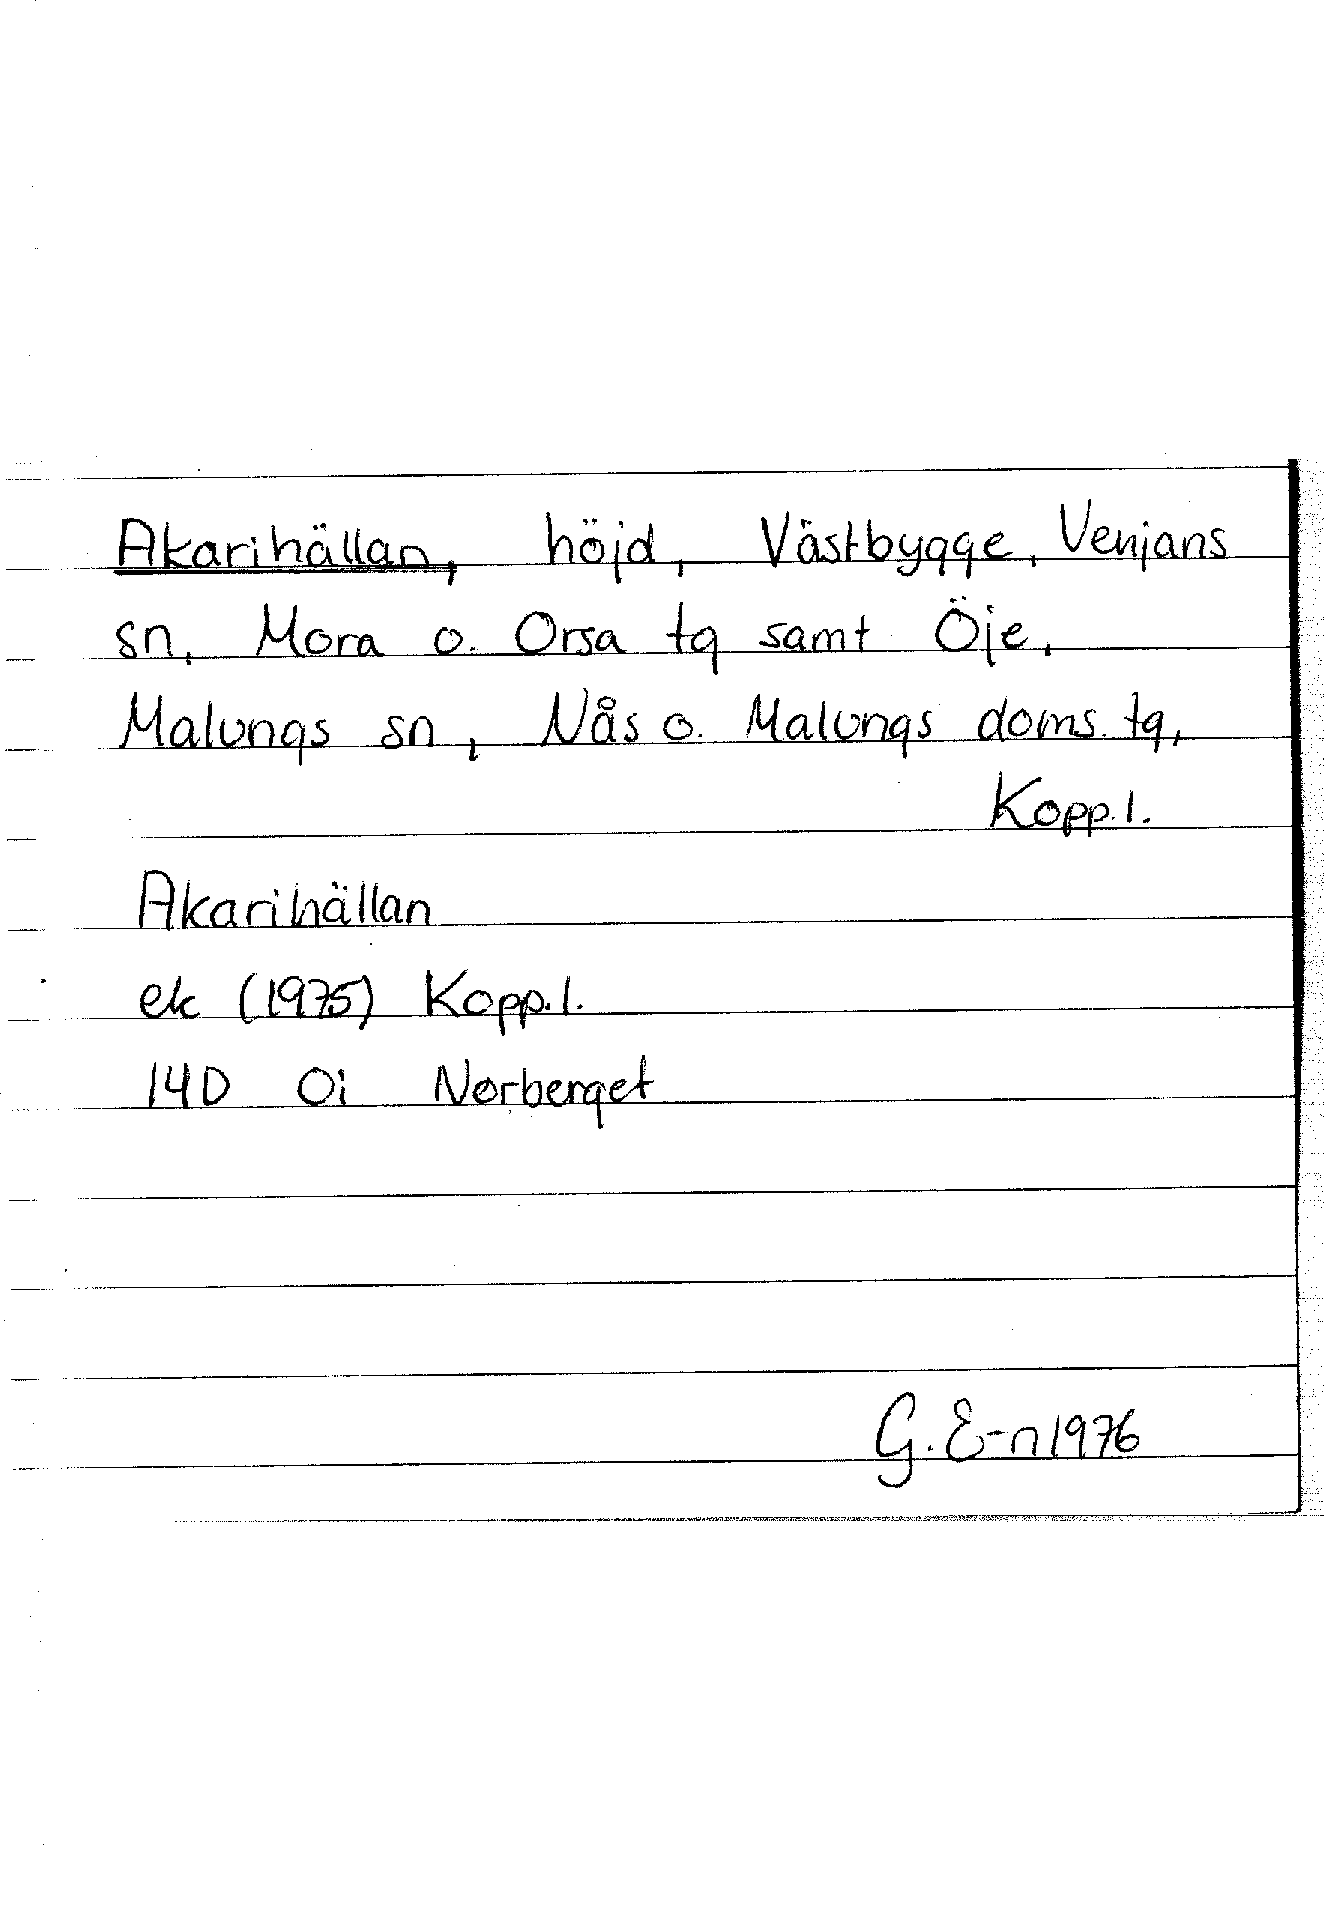 Akarihällan, höjd, Västbygge, Venjans
sn, Mora o. Orsa tg samt Öje,
Malungs sn, Nås o. Malungs doms. tg,
Kopp. l.
Akarihällan
ek (1975) Kopp. l.
14D 0i Norberget
G. E-n 1976